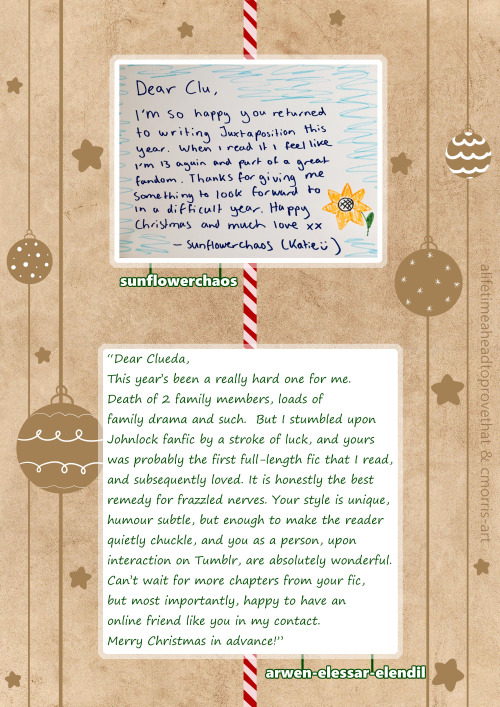 Dear Clu,
I'm so happy you returned
to writing Juxtaposition this
year. When I read it I feel like
I'm 13 again and part of a great
fandom. Thanks for giving me
something to look forward to
in a difficult year. Happy
Christmas and much love xx
– Sunflowerchaos (Katie)
sunflowerchaos
“Dear Clueda,
This year's been a really hard one for me.
Death of 2 family members, loads of
family drama and such.  But I stumbled upon
Johnlock fanfic by a stroke of luck, and yours
was probably the first full-length fic that I read,
and subsequently loved. It is honestly the best
remedy for frazzled nerves. Your style is unique,
humour subtle, but enough to make the reader
quietly chuckle, and you as a person, upon
interaction on Tumblr, are absolutely wonderful.
Can't wait for more chapters from your fic,
but most importantly, happy to have an
online friend like you in my contact.
Merry Christmas in advance!”
arwen-elessar-elendil
alifetimeaheadtoprovethat & cmorris-art